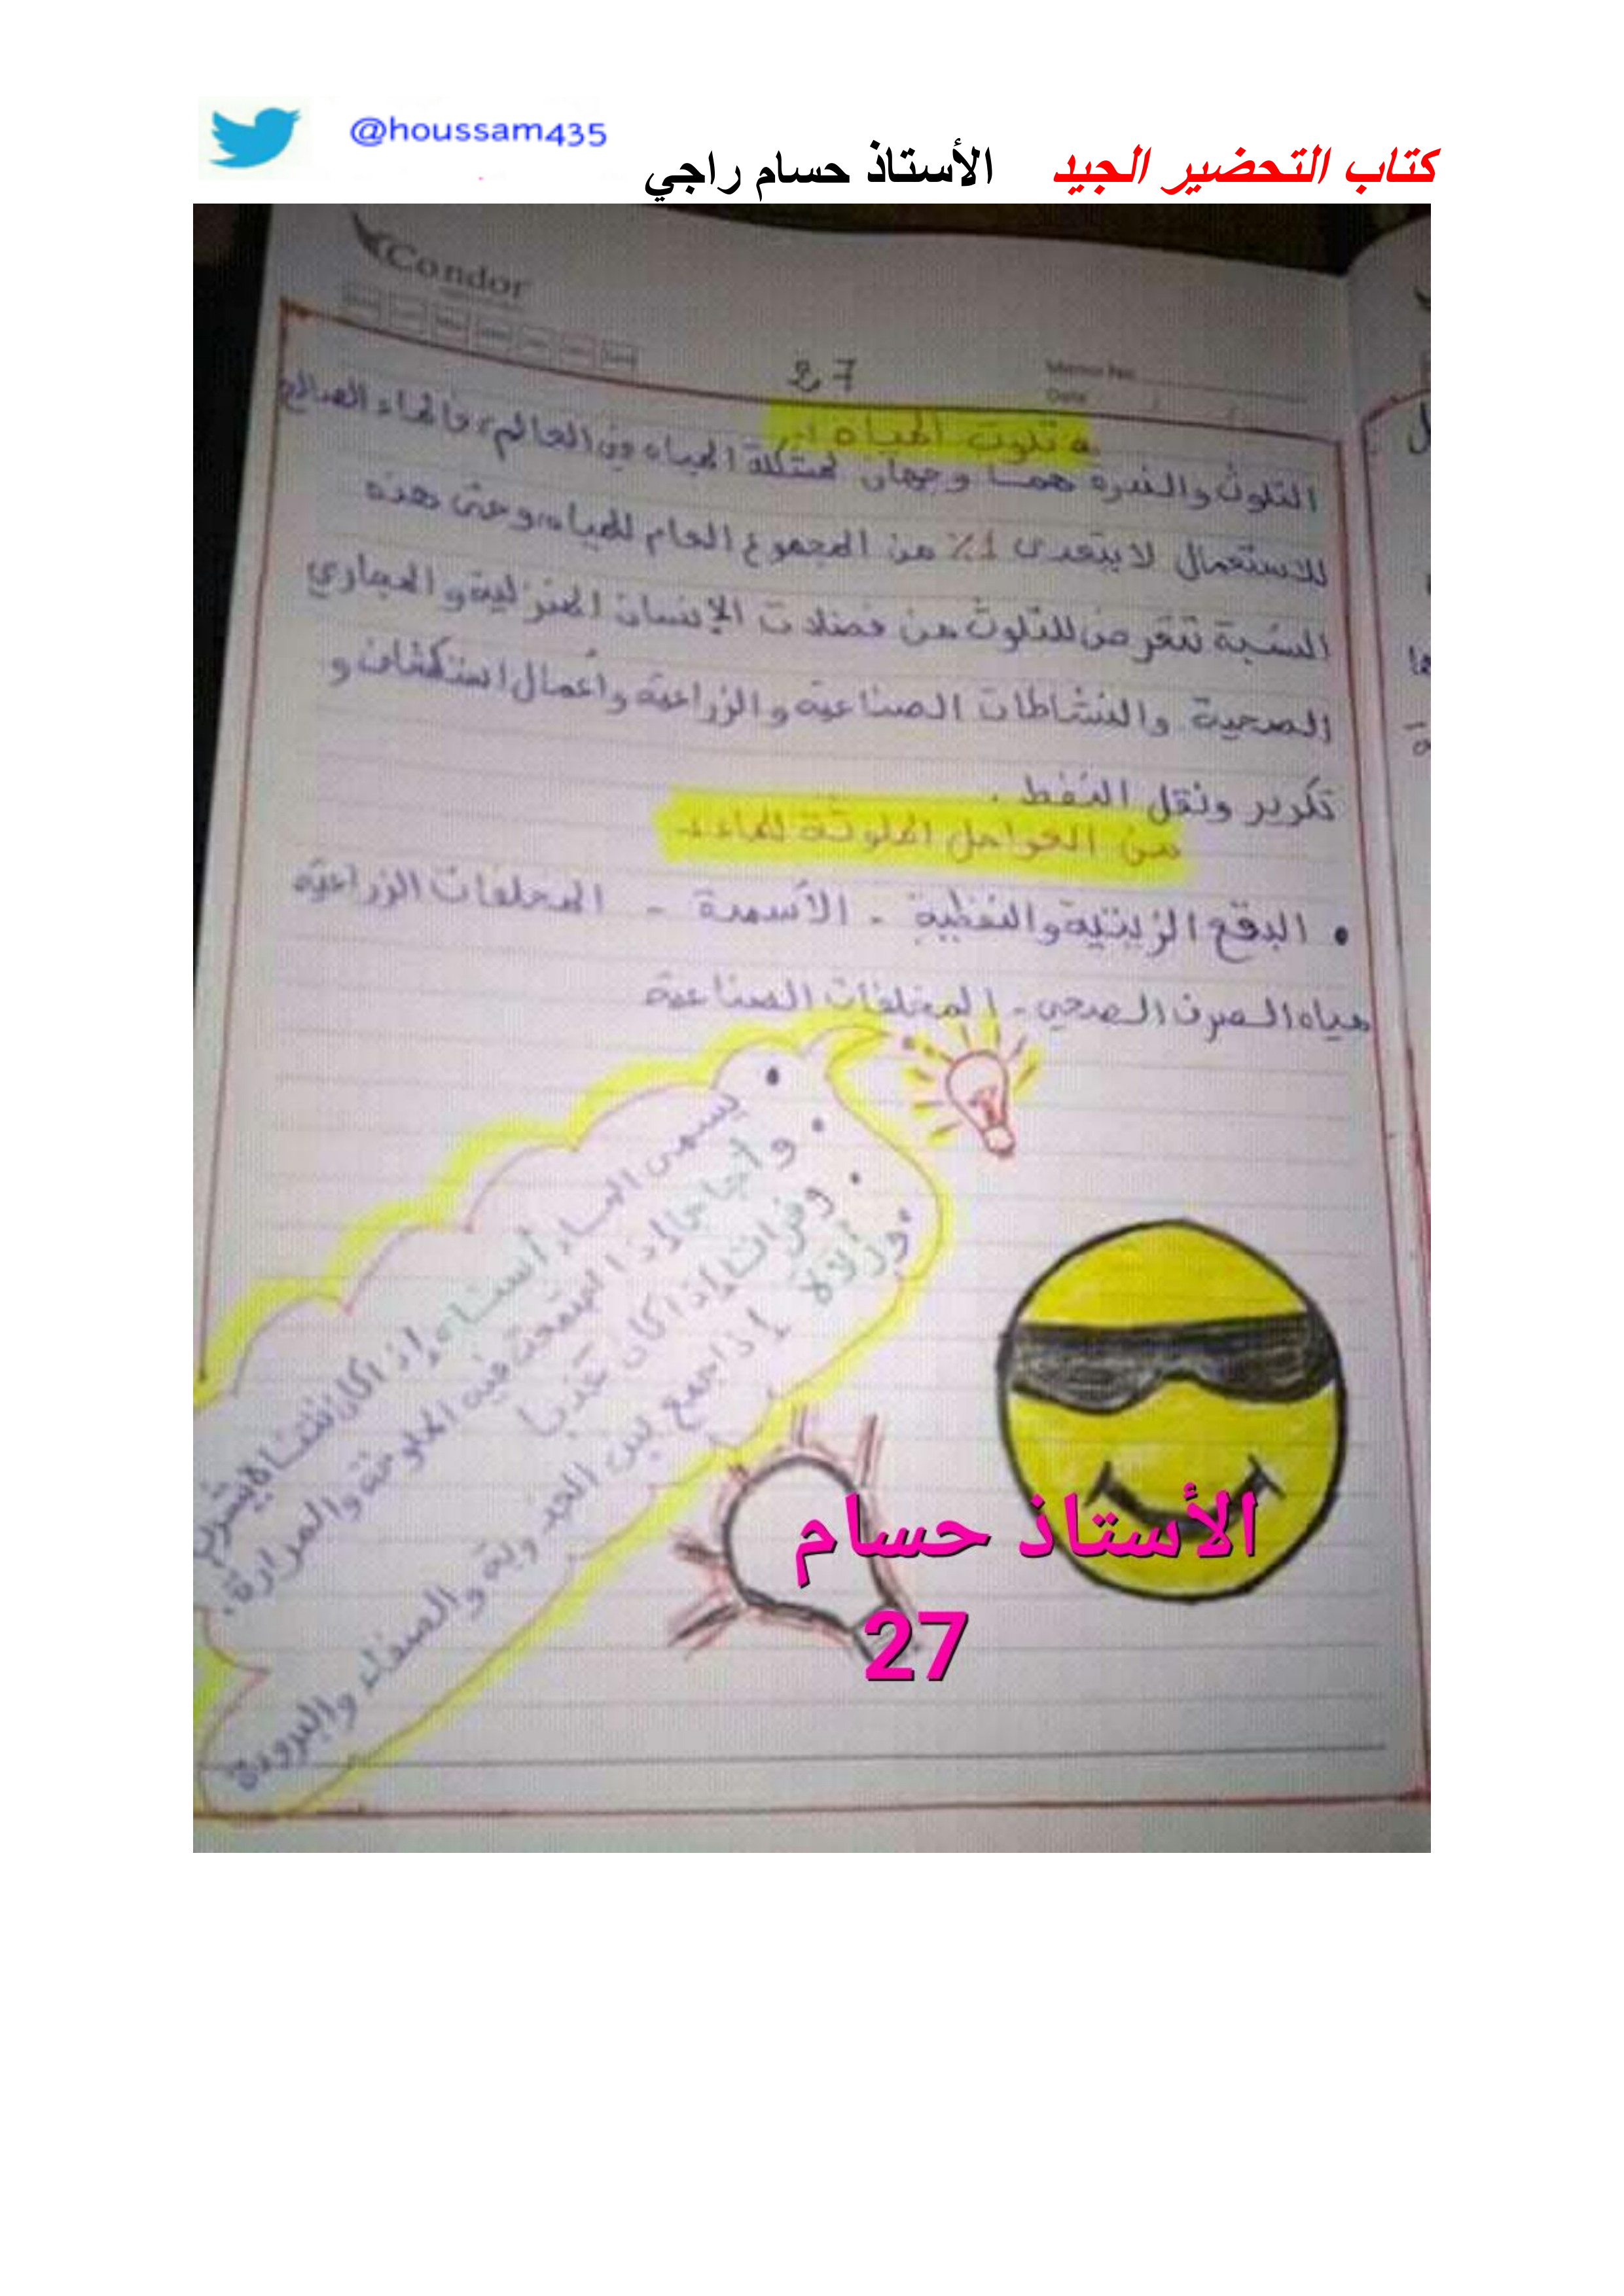 @houssam435
كتاب التحضير الجيد الأستاذ حسام راجي
Condor
Memo No.
Date
27
تلوث المياه :
التلوث والندرة هما وجهان لمشكلة المياه في العالم، فالماء الصالح
للاستعمال لا يتعدى 1% من المجموع العام للمياه، وحتى هذه
النسبة تتعرض للتلوث من فضلات الإنسان المنزلية والمجاري
الصحية والنشاطات الصناعية والزراعية وأعمال استكشاف و
تكرير ونقل النفط .
من العوامل الملوثة للماء :
• البقع الزيتية والنفطية - الأسمدة - المخلفات الزراعية
مياه الصرف الصحي - المخلفات الصناعية
• يسمى الماء إذا كان
• وأجاجا إذا اجتمعت فيه الملوحة والمرارة.
• وفراتا إذا كان عذبا
• وزلالا إذا جمع بين العذوبة والصفاء والبرودة
الأستاذ حسام
27